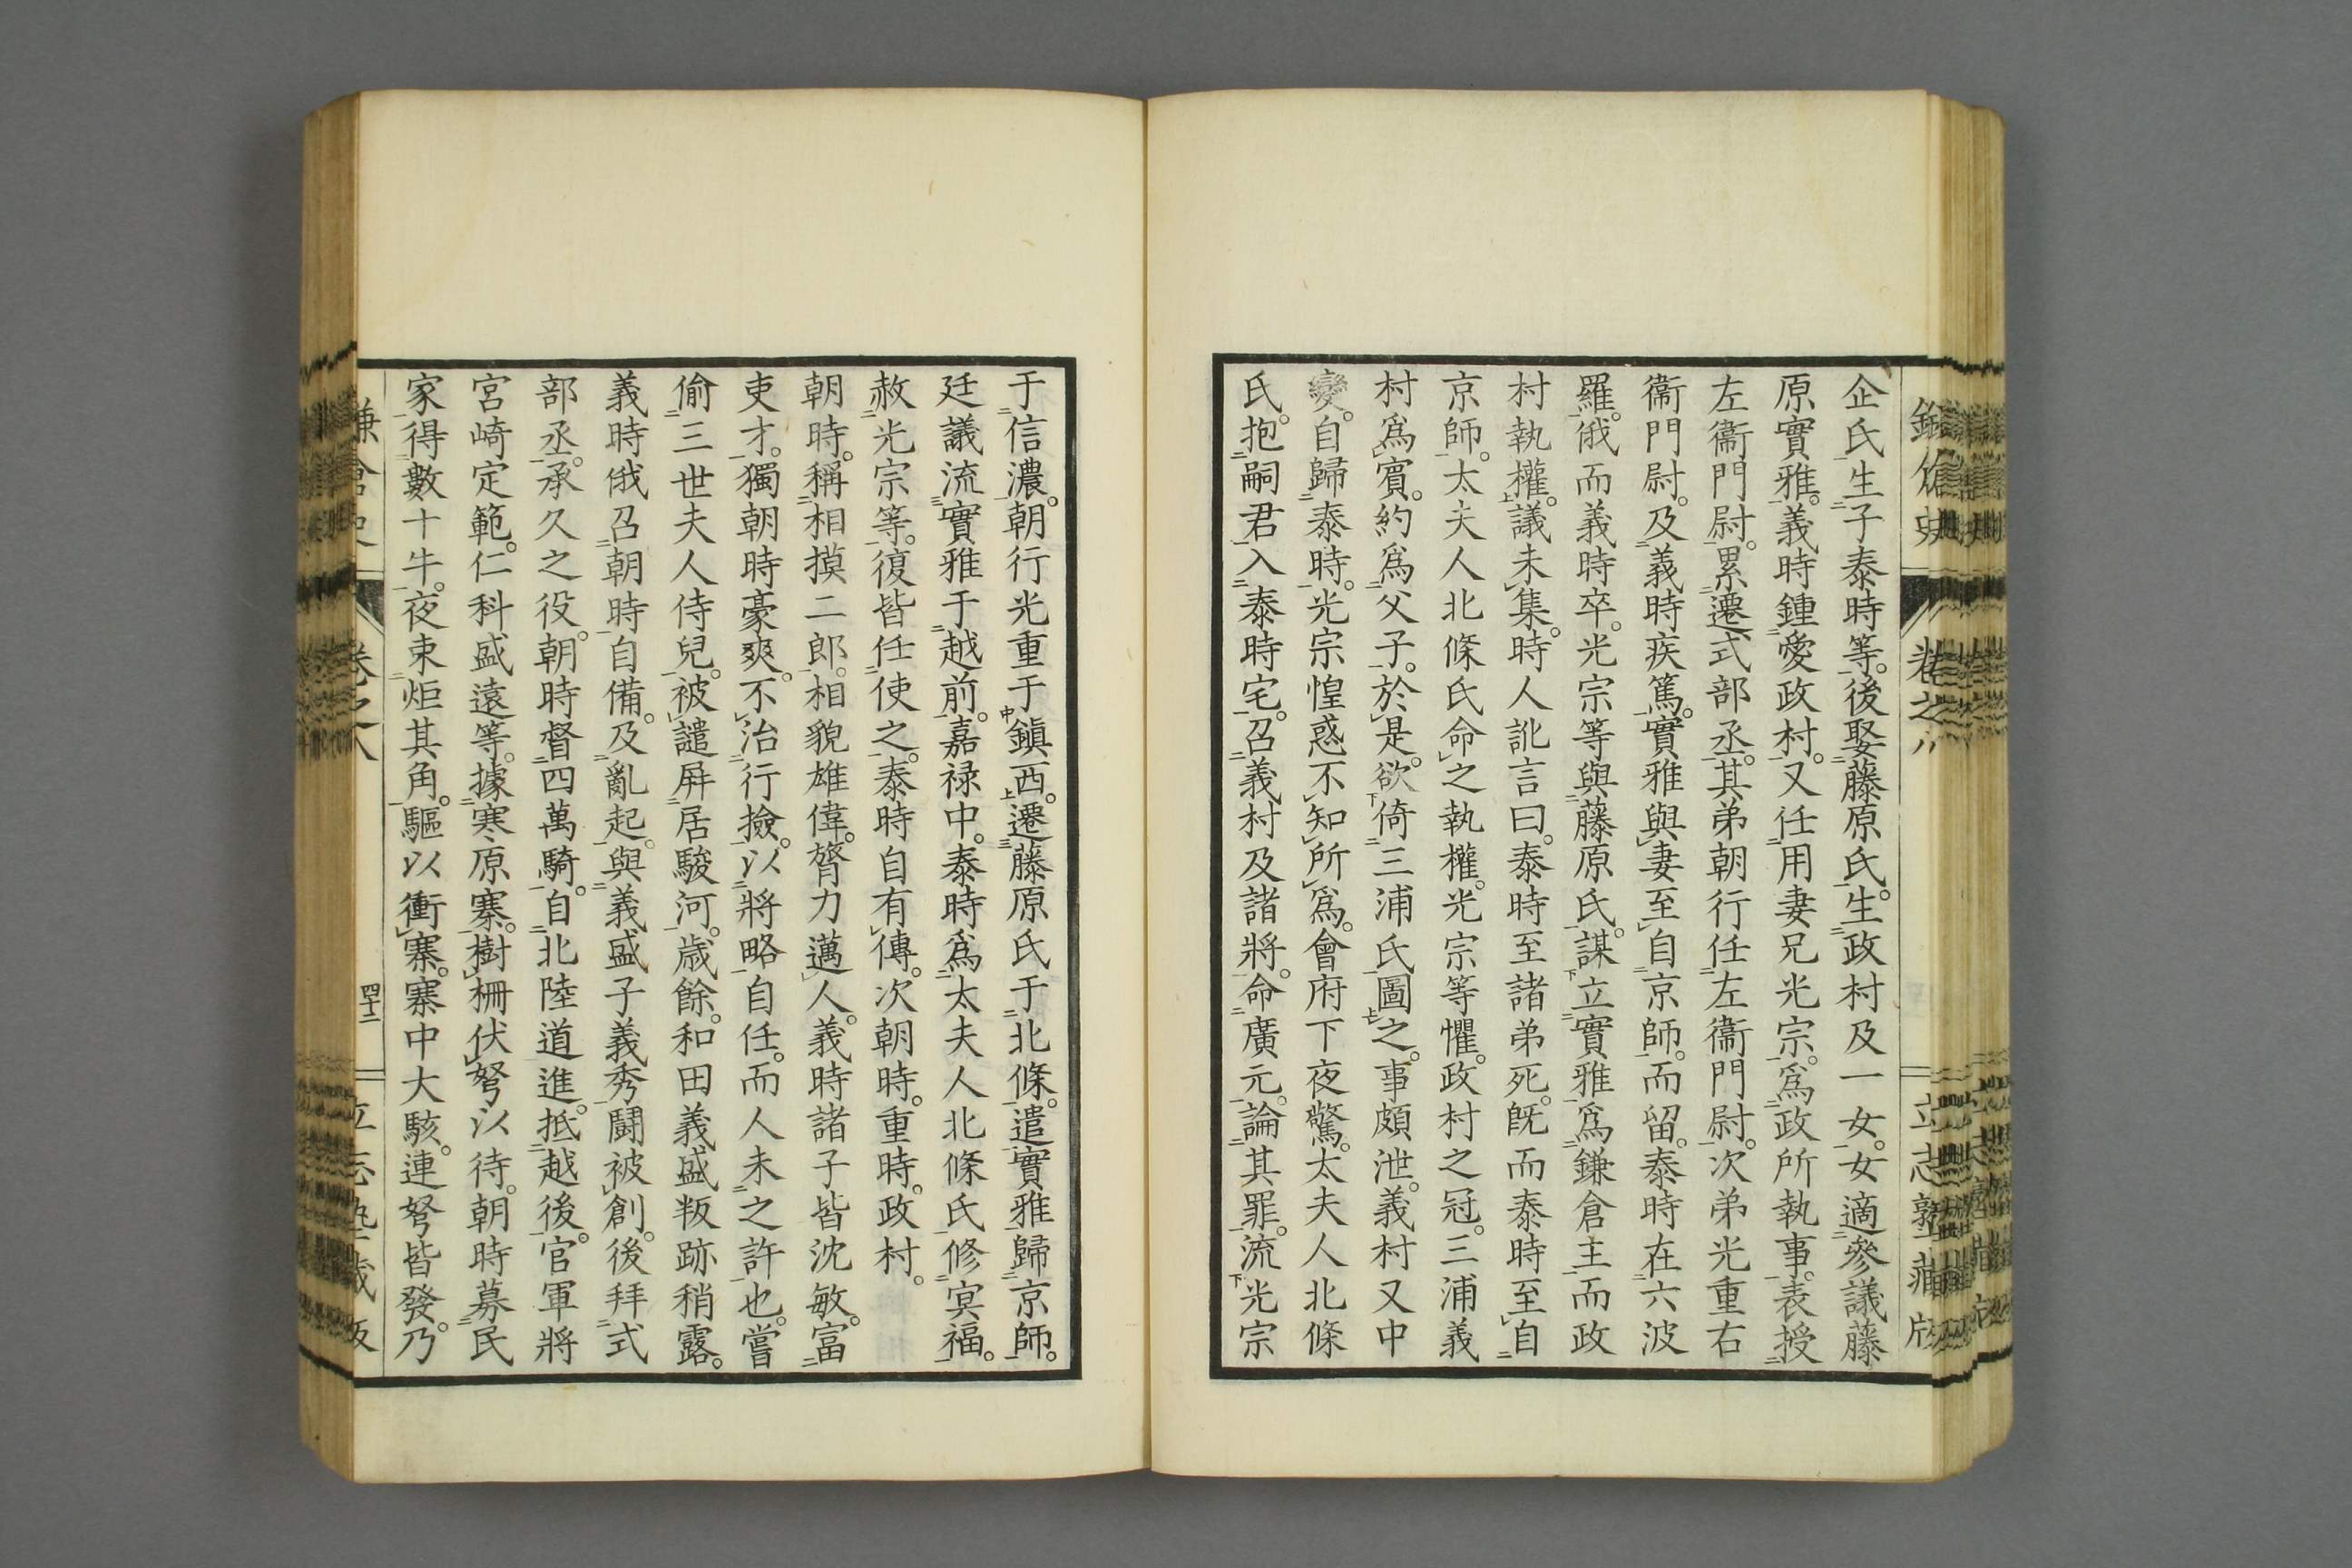 企氏生子泰時等。後娶藤原氏。生政村及一女。女適參議藤
原實雅。義時鍾愛政村。又任用妻兄光宗。爲政所執事。表授
左衞門尉。累遷式部丞。其弟朝行任左衞門尉。次弟光重右
衞門尉。及義時疾篤。實雅與妻至自京師。而留。泰時在六波
羅。俄而義時卒。光宗等與藤原氏。謀立實雅爲鎌倉主。而政
村執權。議未集。時人訛言曰。泰時至諸弟死。既而泰時至自
京師。太夫人北條氏命之執權。光宗等懼。政村之冠。三浦義
村爲賓。約爲父子。於是。欲倚三浦氏圖之。事頗泄。義村又中
變。自歸泰時。光宗惶惑不知所爲。會府下夜驚。太夫人北條
氏。抱嗣君入泰時宅。召義村及諸將。命廣元。論其罪。流光宗
于信濃。朝行光重于鎭西。遷藤原氏于北條。遣實雅歸京師。
廷議流實雅于越前。嘉禄中。泰時爲太夫人北條氏修冥福。
赦光宗等。復皆任使之。泰時自有傳。次朝時。重時。政村。
朝時。稱相摸二郎。相貌雄偉。膂力邁人。義時諸子皆沈敏。富
吏才。獨朝時豪爽。不治行撿。以將略自任。而人未之許也。嘗
偷三世夫人侍兒。被譴屛居駿河。歲餘。和田義盛叛跡稍露。
義時俄召朝時自備。及亂起。與義盛子義秀鬪被創。後拜式
部丞。承久之役。朝時督四萬騎。自北陸道進。抵越後。官軍將
宮崎定範。仁科盛遠等。據寒原寨。樹柵伏弩以待。朝時募民
家得數十牛。夜束炬其角。驅以衝寨。寨中大駭。連弩皆發。乃
卷之八
四十二